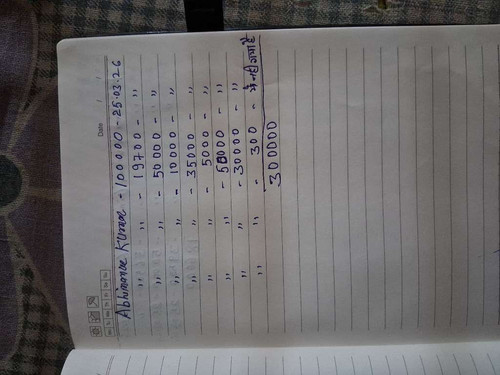 Date / /
Abhimanue Kumar - 100000 - 25.03.26
" " - 19700 - "
" " - 50000 - "
" " - 10000 - "
" " - 35000 - "
" " - 5000 - "
" " - 50000 - "
" " - 30000 - "
" " - 300 -
300000